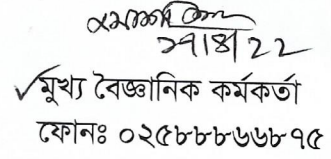 ২৭/৪/২২
✓মুখ্য বৈজ্ঞানিক কর্মকর্তা
ফোনঃ ০২৫৮৮৮৬৬৮৭৫